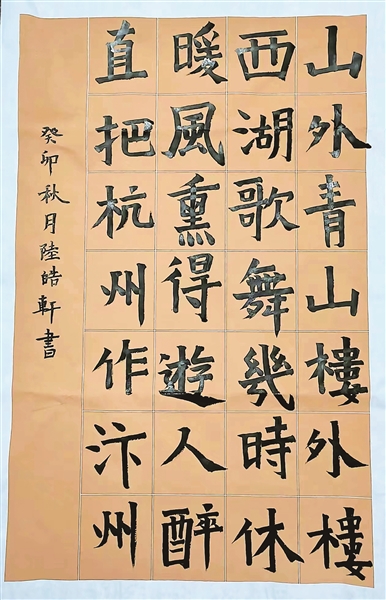 山外青山樓外樓
西湖歌舞幾時休
暖風熏得遊人醉
直把杭州作汴州
癸卯秋月陸皓軒書